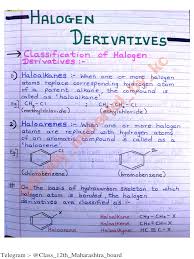 HALOGEN
DERIVATIVES
→ Classification of Halogen
Derivatives :-
1) Haloalkanes :- When one or more halogen
atoms replace corresponding hydrogen atom
of a parent alkane, the compound is
called as 'haloalkane'
eg) CH₃-Cl CH₃-CH₂-Cl
(methylchloride) (ethylchloride)
2) Haloarenes :- When one or more halogen
atoms are replaced with hydrogen atoms
of an aromatic compound is called
as 'haloarene'
eg) Cl Br
(chlorobenzene) (bromobenzene)
→ On the basis of hydrocarbon skeleton to which
halogen atom is bonded, the halogen
derivatives are classified as :-
Haloalkane CH₃-CH₂-X
Haloalkene CH₂=CH-X
Haloalkyne HC≡C-X
Telegram :- @Class_12th_Maharashtra_board